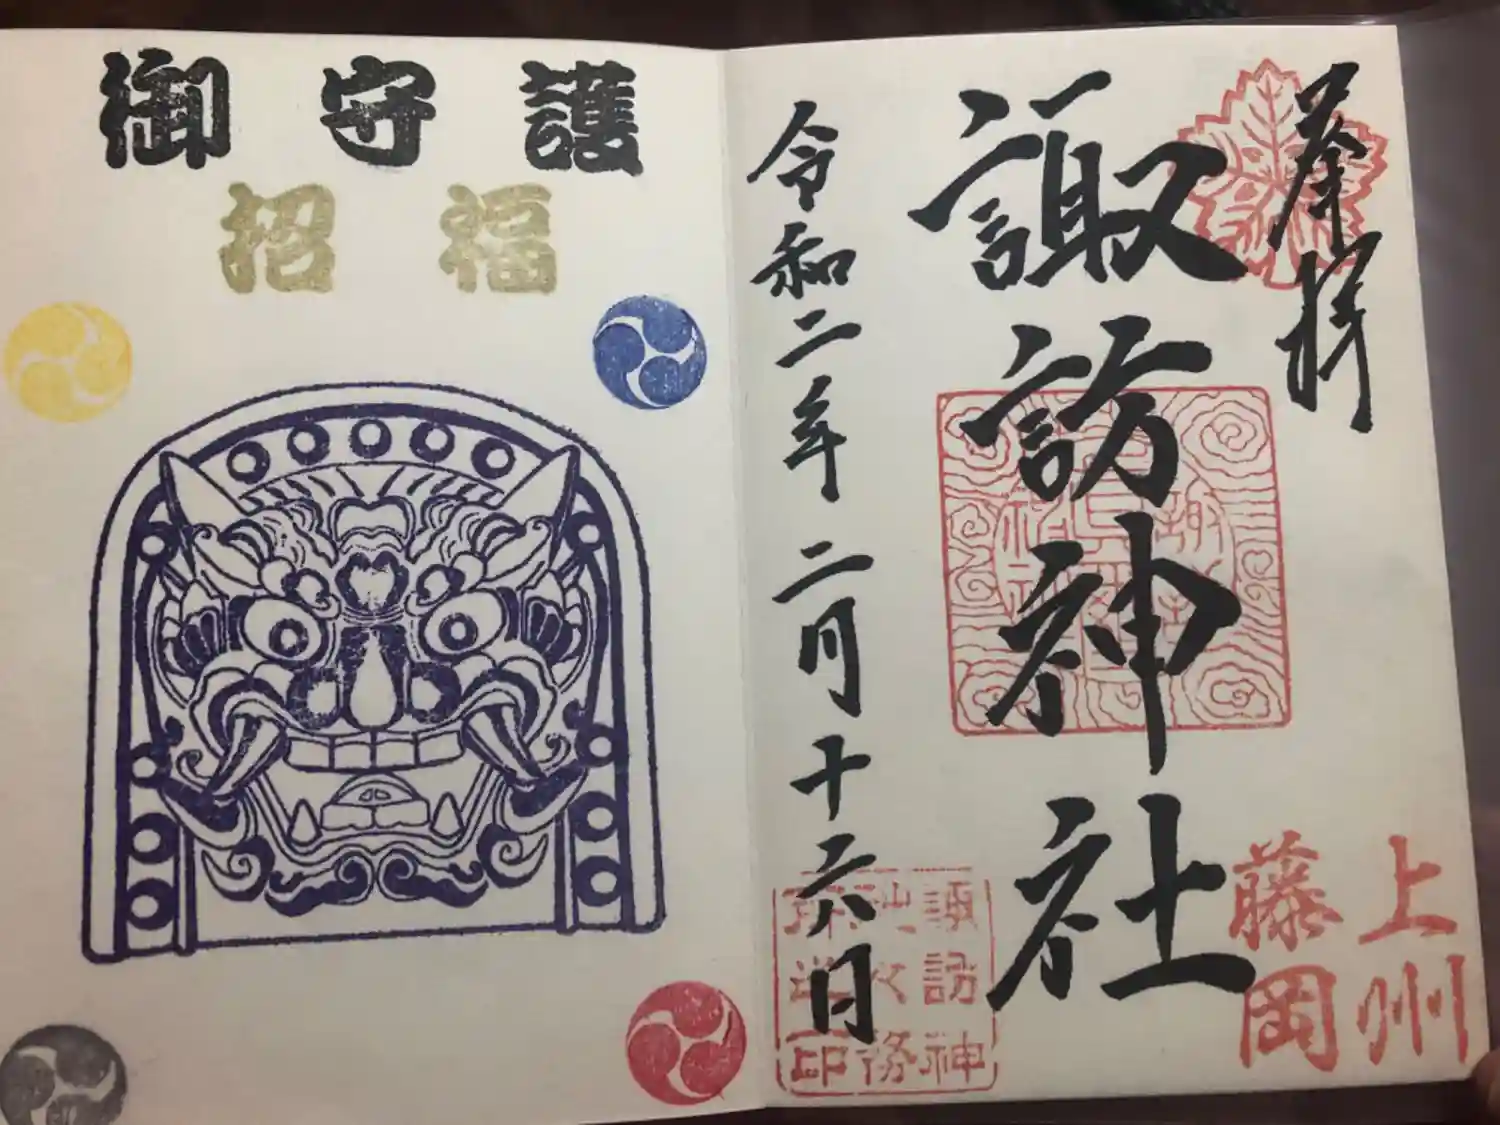 奉拝
諏訪神社
令和二年二月十六日
上州
藤岡
諏訪神
社
務
印
御守護
招福